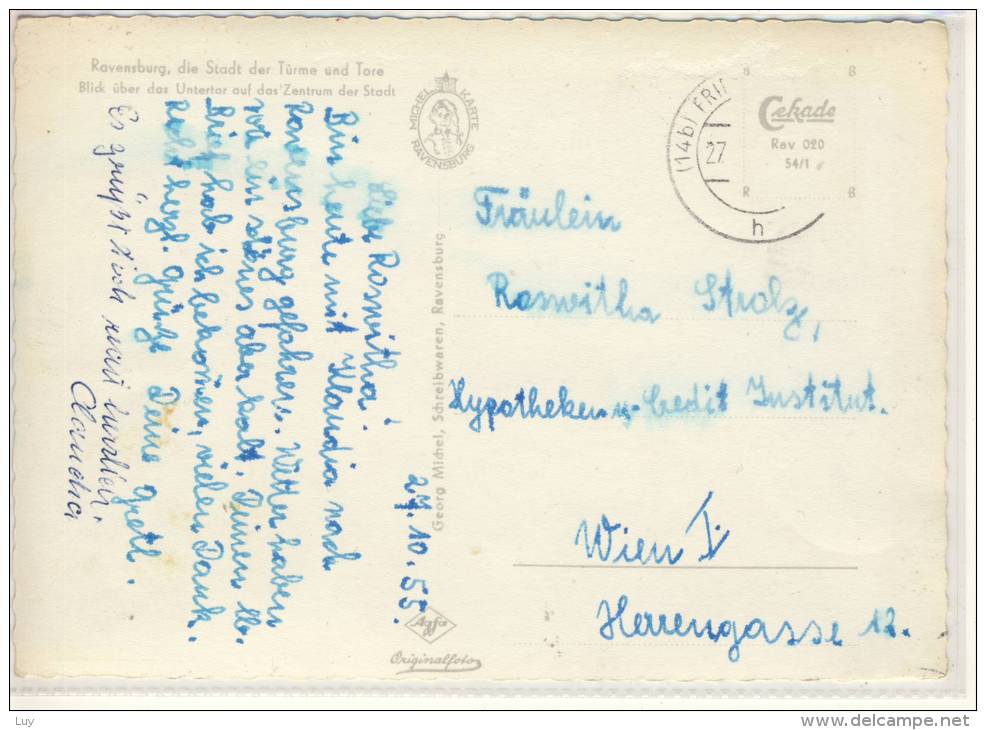 Ravensburg, die Stadt der Türme und Tore
Blick über das Untertor auf das Zentrum der Stadt
MICHEL KARTE
RAVENSBURG
27.10.55.
Liebe Roswitha!
Bin heute mit Klaudia nach
Ravensburg gefahren. Wetter haben
wir ein schönes aber kalt. Deinen lb.
Brief hab ich bekom̄en, vielen Dank.
Recht herzl. Grüße Deine Gretl.
Es grüßt Dich
Claudia
Georg Michel, Schreibwaren, Ravensburg
Agfa
Originalfoto
(14b) FRI
27
h
B B
Cekade
Rav 020
54/1
R B
Fräulein
Roswitha Stolz,
Hypotheken u. Credit Institut.
Wien I.
Herrengasse 12.
Luy
http://www.delcampe.net